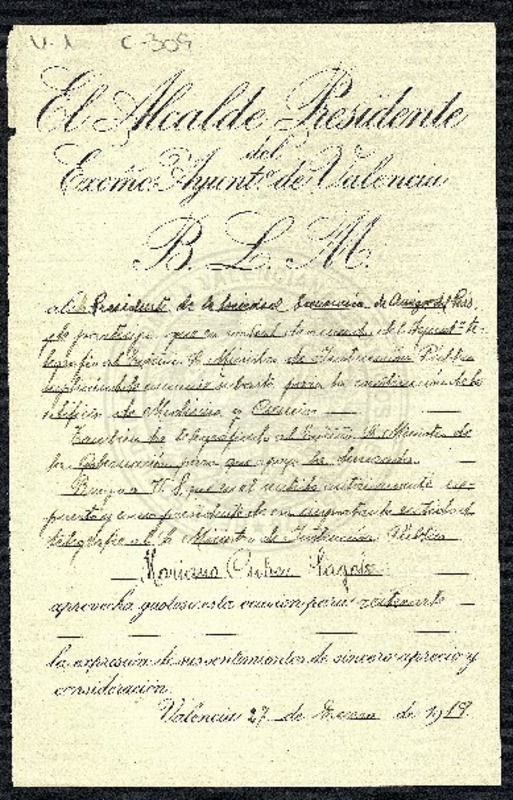 V-1 C-309
El Alcalde Presidente
del
Excmo. Ayuntº. de Valencia
B. L. M.
al Presidente de la Sociedad Económica de Amigos del País
y le participa que en virtud de acuerdo del Ayuntº te-
legrafía al Excmo. Sr. Ministro de Instrucción Pública
anuncie subasta para la construcción de los
edificios de Medicina y Ciencias
También ha telegrafiado al Excmo. Sr. Ministro de
la Gobernación para que apoye la demanda.
Ruega a V. S. que en el sentido anteriormente ex-
puesto y como presidente de esa importante entidad
telegrafíe al Sr. Ministro de Instrucción Pública
Mariano
aprovecha gustoso esta ocasión para reiterarle
la expresión de sus sentimientos de sincero aprecio y
consideración.
Valencia 27 de Enero de 1919.